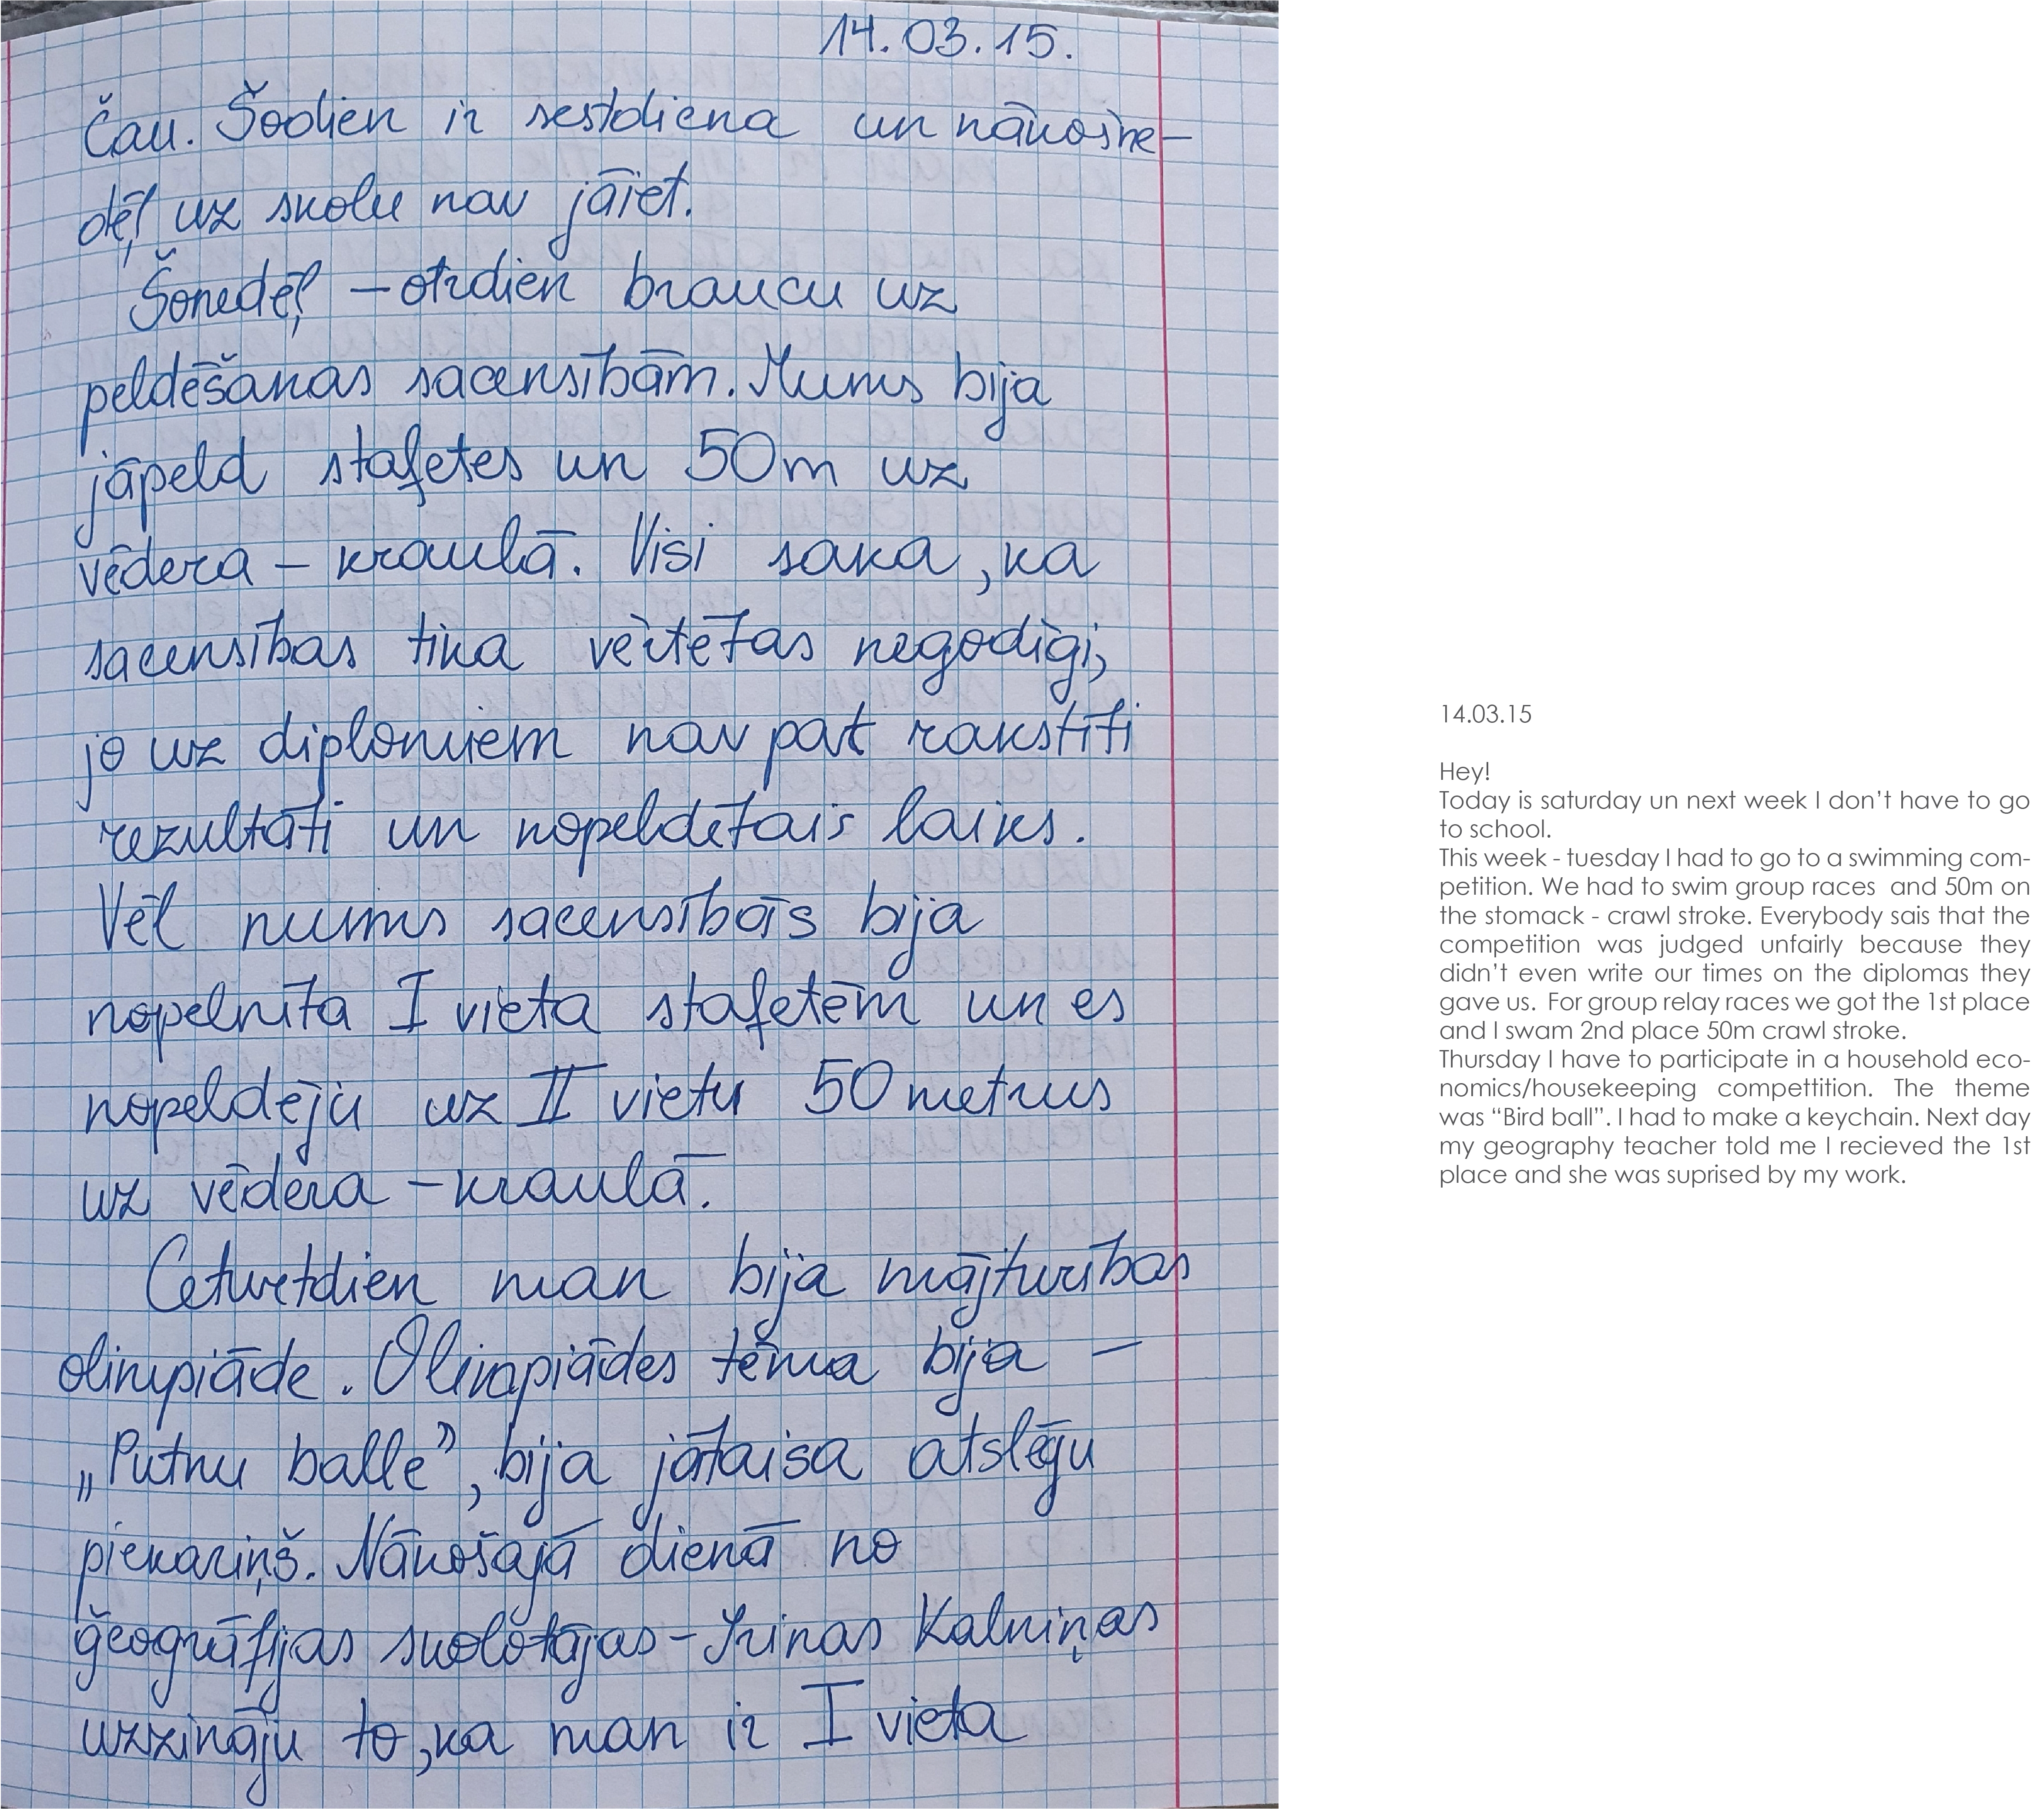 14.03.15.
Čau. Šodien ir sestdiena un nākošne-
dēļ uz skolu nav jāiet.
Šonedēļ – otrdien braucu uz
peldēšanas sacensībām. Mums bija
jāpeld stafetes un 50m uz
vēdera – kraulā. Visi saka, ka
sacensības tika vērtētas negodīgi,
jo uz diplomiem nav pat rakstīti
rezultāti un nopeldētais laiks.
Vēl mums sacensībās bija
nopelnīta I vieta stafetēm un es
nopeldēju uz II vietu 50 metrus
uz vēdera – kraulā.
Ceturtdien man bija mājturības
olimpiāde. Olimpiādes tēma bija –
„Putnu balle”, bija jātaisa atslēgu
piekariņš. Nākošajā dienā no
ģeogrāfijas skolotājas – Irinas Kalniņas
uzzināju to, ka man ir I vieta
14.03.15
Hey!
Today is saturday un next week I don’t have to go
to school.
This week - tuesday I had to go to a swimming com-
petition. We had to swim group races and 50m on
the stomack - crawl stroke. Everybody sais that the
competition was judged unfairly because they
didn’t even write our times on the diplomas they
gave us. For group relay races we got the 1st place
and I swam 2nd place 50m crawl stroke.
Thursday I have to participate in a household eco-
nomics/housekeeping compettition. The theme
was “Bird ball”. I had to make a keychain. Next day
my geography teacher told me I recieved the 1st
place and she was suprised by my work.